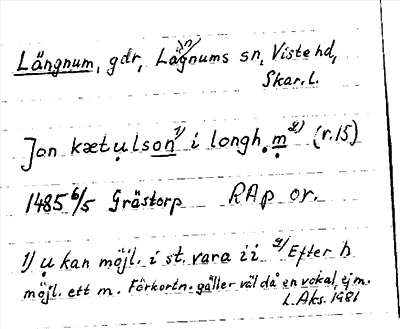 Längnum, gdr, Lägnums sn, Viste hd,
Skar. l.
Jon kætulson 1) i longh.m 2) (r.15)
1485 6/5 Grästorp RAp or.
1) u kan möjl. i st. vara ii 2) Efter h
möjl. ett m. Förkortn. gäller väl då en vokal, ej m.
L. Aks. 1981